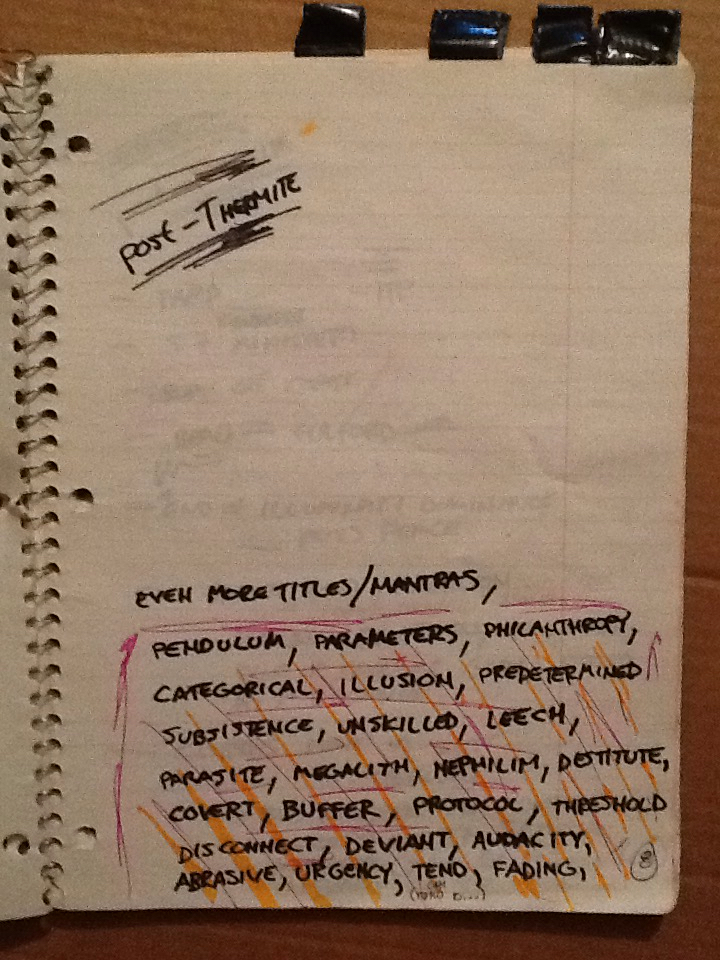 POST-THERMITE
EVEN MORE TITLES/MANTRAS,
PENDULUM, PARAMETERS, PHILANTHROPY,
CATEGORICAL, ILLUSION, PREDETERMINED
SUBSISTENCE, UNSKILLED, LEECH,
PARASITE, MEGALITH, NEPHILIM, DESTITUTE,
COVERT, BUFFER, PROTOCOL, THRESHOLD
DISCONNECT, DEVIANT, AUDACITY,
ABRASIVE, URGENCY, TEND, FADING,
8